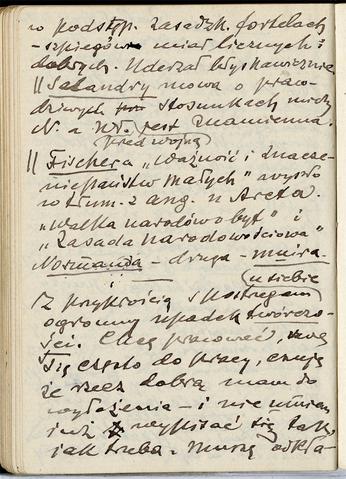 w podstęp. zasadzk. fortelach
- szpiegów miał licznych i
dobrych. Uderzał błyskawicznie
|| Salandry mowa o praw-
dziwych stosunkach między
N. a Wł. jest znamienna.
przed wojną
|| Fischera „Ważność i znacze-
nie państw małych" wyszło
w tłum. z ang. u Arcta.
„Walka narodów o byt" i
„Zasada Narodowościowa"
Normanda - druga - Muira.
u siebie
Z przykrością spostrzegam
ogromny upadek twórczo-
ści. Chcę pracować,
się często do pracy, czuję
że rzecz dobrą mam do
wyłożenia - i nie umiem
już wypisać się tak,
jak trzeba. Muszę odkła-